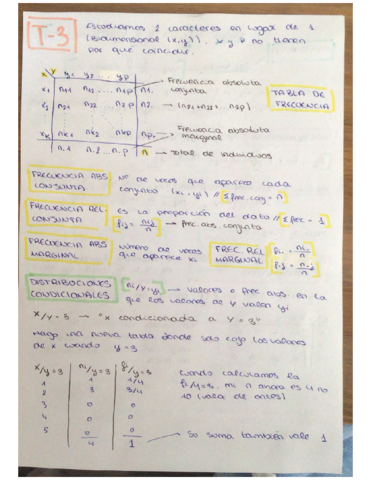 T-3
Estudiamos 2 caracteres en lugar de 1
(Bidimensional (x,y)). x y p no tienen
por qué coincidir.
x y y1 y2 ... yp
x1 n11 n12 ... n1p n1.
n21 n22 ... n2p → (n21+n22+...n2p)
xk nk1 nk2 nkp
n.1 n.2 ... n.p n → Total de individuos
Frecuencia absoluta
conjunta
TABLA DE
FRECUENCIA
Frecuencia absoluta
marginal
FRECUENCIA ABS
CONJUNTA
Nº de veces que aparece cada
conjunto (xi, yj) // Σ frec. conj = n
FRECUENCIA REL
CONJUNTA
Es la proporción del dato // Σ frec = 1
fij = nij/n → frec. abs. conjunta
FRECUENCIA ABS
MARGINAL
número de veces
que aparece xi
FREC. REL
MARGINAL
fi. = ni./n
f.j = n.j/n
DISTRIBUCIONES
CONDICIONALES
ni/y=yj → valores o frec abs. en la
que los valores de y valen yj
x/y=3 → "x condicionada a y=3"
Hago una nueva tabla donde solo cojo los valores
de x cuando y=3
x/y=3 ni/y=3 fi/y=3
1 1 1/4
2 3 3/4
3 0 0
4 0 0
5 0 0
4 1
cuando calculamos la
fi/y=3, mi n ahora es 4 no
10 (vale de antes)
→ Su suma también vale 1